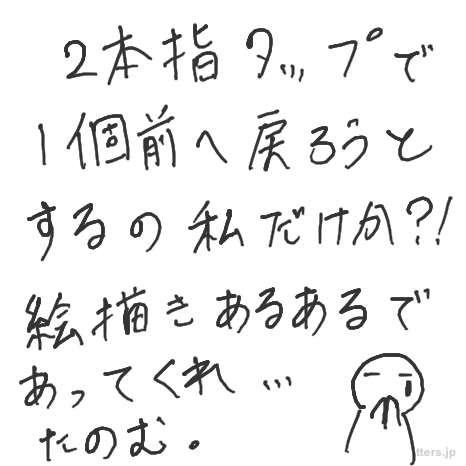 2本指タップで
1個前へ戻ろうと
するの私だけか?!
絵描きあるあるで
あってくれ…
たのむ。
tters.jp